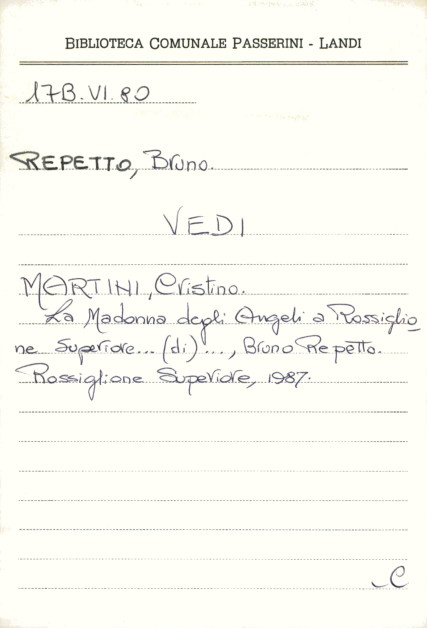 BIBLIOTECA COMUNALE PASSERINI - LANDI
17B.VI.80
REPETTO, Bruno.
VEDI
MARTINI, Cristino.
La Madonna degli Angeli a Rossiglio_
ne Superiore... (di) ..., Bruno Repetto.
Rossiglione Superiore, 1987.
C